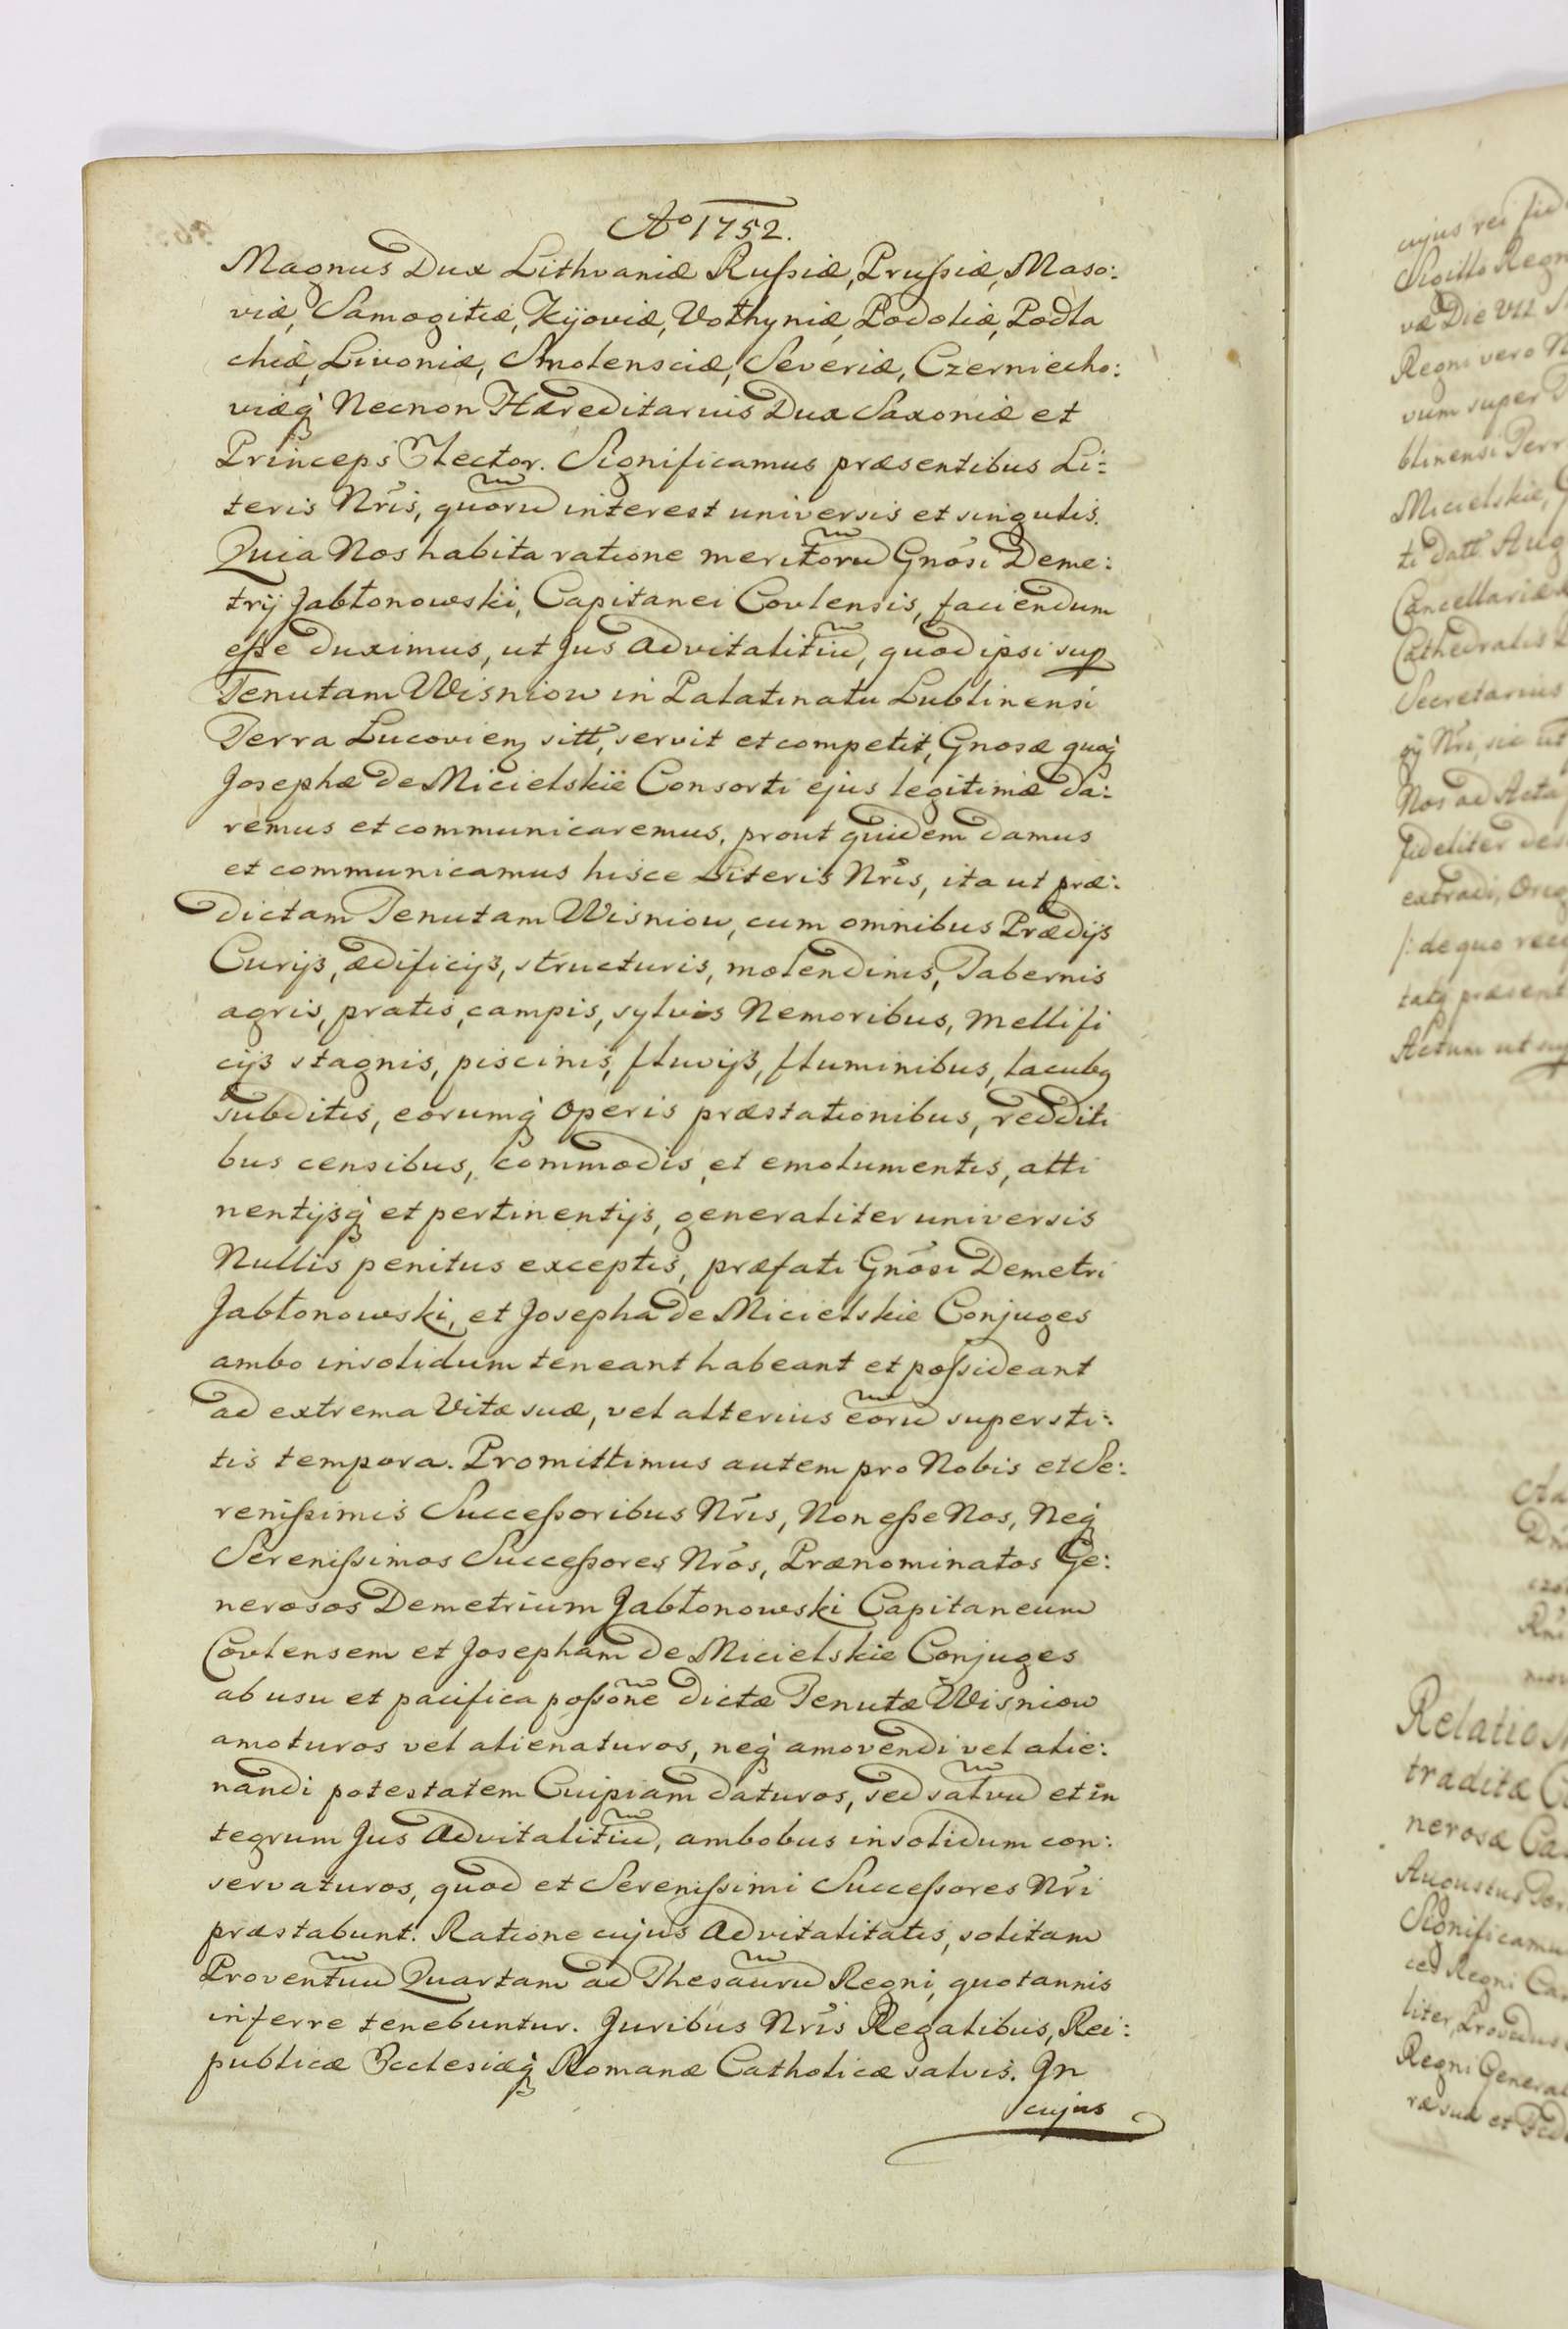 Aº 1752.
Magnus Dux Lithvaniæ Russiæ, Prussiæ, Maso:
viæ, Samogitiæ, Kijoviæ, Volhyniæ, Podoliæ, Podla
chiæ, Livoniæ, Smolensciæ, Severiæ, Czerniecho:
viæq̀ Necnon Hæreditarius Dux Saxoniæ et
Princeps Elector. Significamus præsentibus Li:
teris Nr̃is, quorũ interest universis et singulis.
Quia Nos habita ratione meritorũ Gnõsi Deme:
trij Jabłonowski, Capitanei Covlensis, faciendum
esse duximus, ut Jus Advitalitiũ, quod ipsi sup
Tenutam Wisniow in Palatinatu Lublinensi
Terra Lucovien sitt, servit et competit, Gnosæ quoq̀
Josephæ de Micielskie Consorti ejus legitimæ da:
remus et communicaremus, prout quidem damus
et communicamus hisce Literis Nr̃is, ita ut præ:
dictam Tenutam Wisniow, cum omnibus Prædijs
Curijs, ædificijs, structuris, molendinis, Tabernis
agris, pratis, campis, sylvis Nemoribus, Mellifi
cijs stagnis, piscinis, fluvijs, fluminibus, lacubq
subditis, eorumq̀ operis præstationibus, redditi
bus censibus, commodis, et emolumentis, atti
nentijsq̀ et pertinentijs, generaliter universis
Nullis penitus exceptis, præfati Gnõsi Demetri
Jabłonowski, et Josepha de Micielskie Conjuges
ambo insolidum teneant habeant et possideant
ad extrema Vitæ suæ, vel alterius eorũ supersti:
tis tempora. Promittimus autem pro Nobis et Se:
renissimis Successoribus Nr̃is, Non esse Nos, Neq̀
Serenissimos Successores Nr̃os, Prænominatos Ge:
nerosos Demetrium Jabłonowski Capitaneum
Covlensem et Josepham de Micielskie Conjuges
ab usu et pacifica possõne dictæ Tenutæ Wisniow
amoturos vel alienaturos, neq̀ amovendi vel alie:
nandi potestatem Cuipiam daturos, sed salvũ et in
tegrum Jus Advitalitiũ, ambobus insolidum con:
servaturos, quod et Serenissimi Successores Nr̃i
præstabunt. Ratione cujus Advitalitatis, solitam
Proventuũ Quartam ad Thesaurũ Regni, quotannis
inferre tenebuntur. Juribus Nr̃is Regalibus, Rei:
publicæ Ecclesiæq̀ Romanæ Catholicæ salvis. In
cujus
cujus rei fid
Sigillo Regn
væ Die VII
Regni vero N
vum super
blinensi Terr
Micielskie,
ti datt Aug
Cancellariæ
Cathedralis
Secretarius
gij Nr̃i, sic ut
Nos ad Acta
fideliter des
extradi, Orig
/: de quo rec
tatq præsent
Actum ut su
Relatio
tradita
nerosæ Ca
Augustus Ter
Significamu
ces Regni Can
liter, Providus
Regni General
ræ suæ et Fide